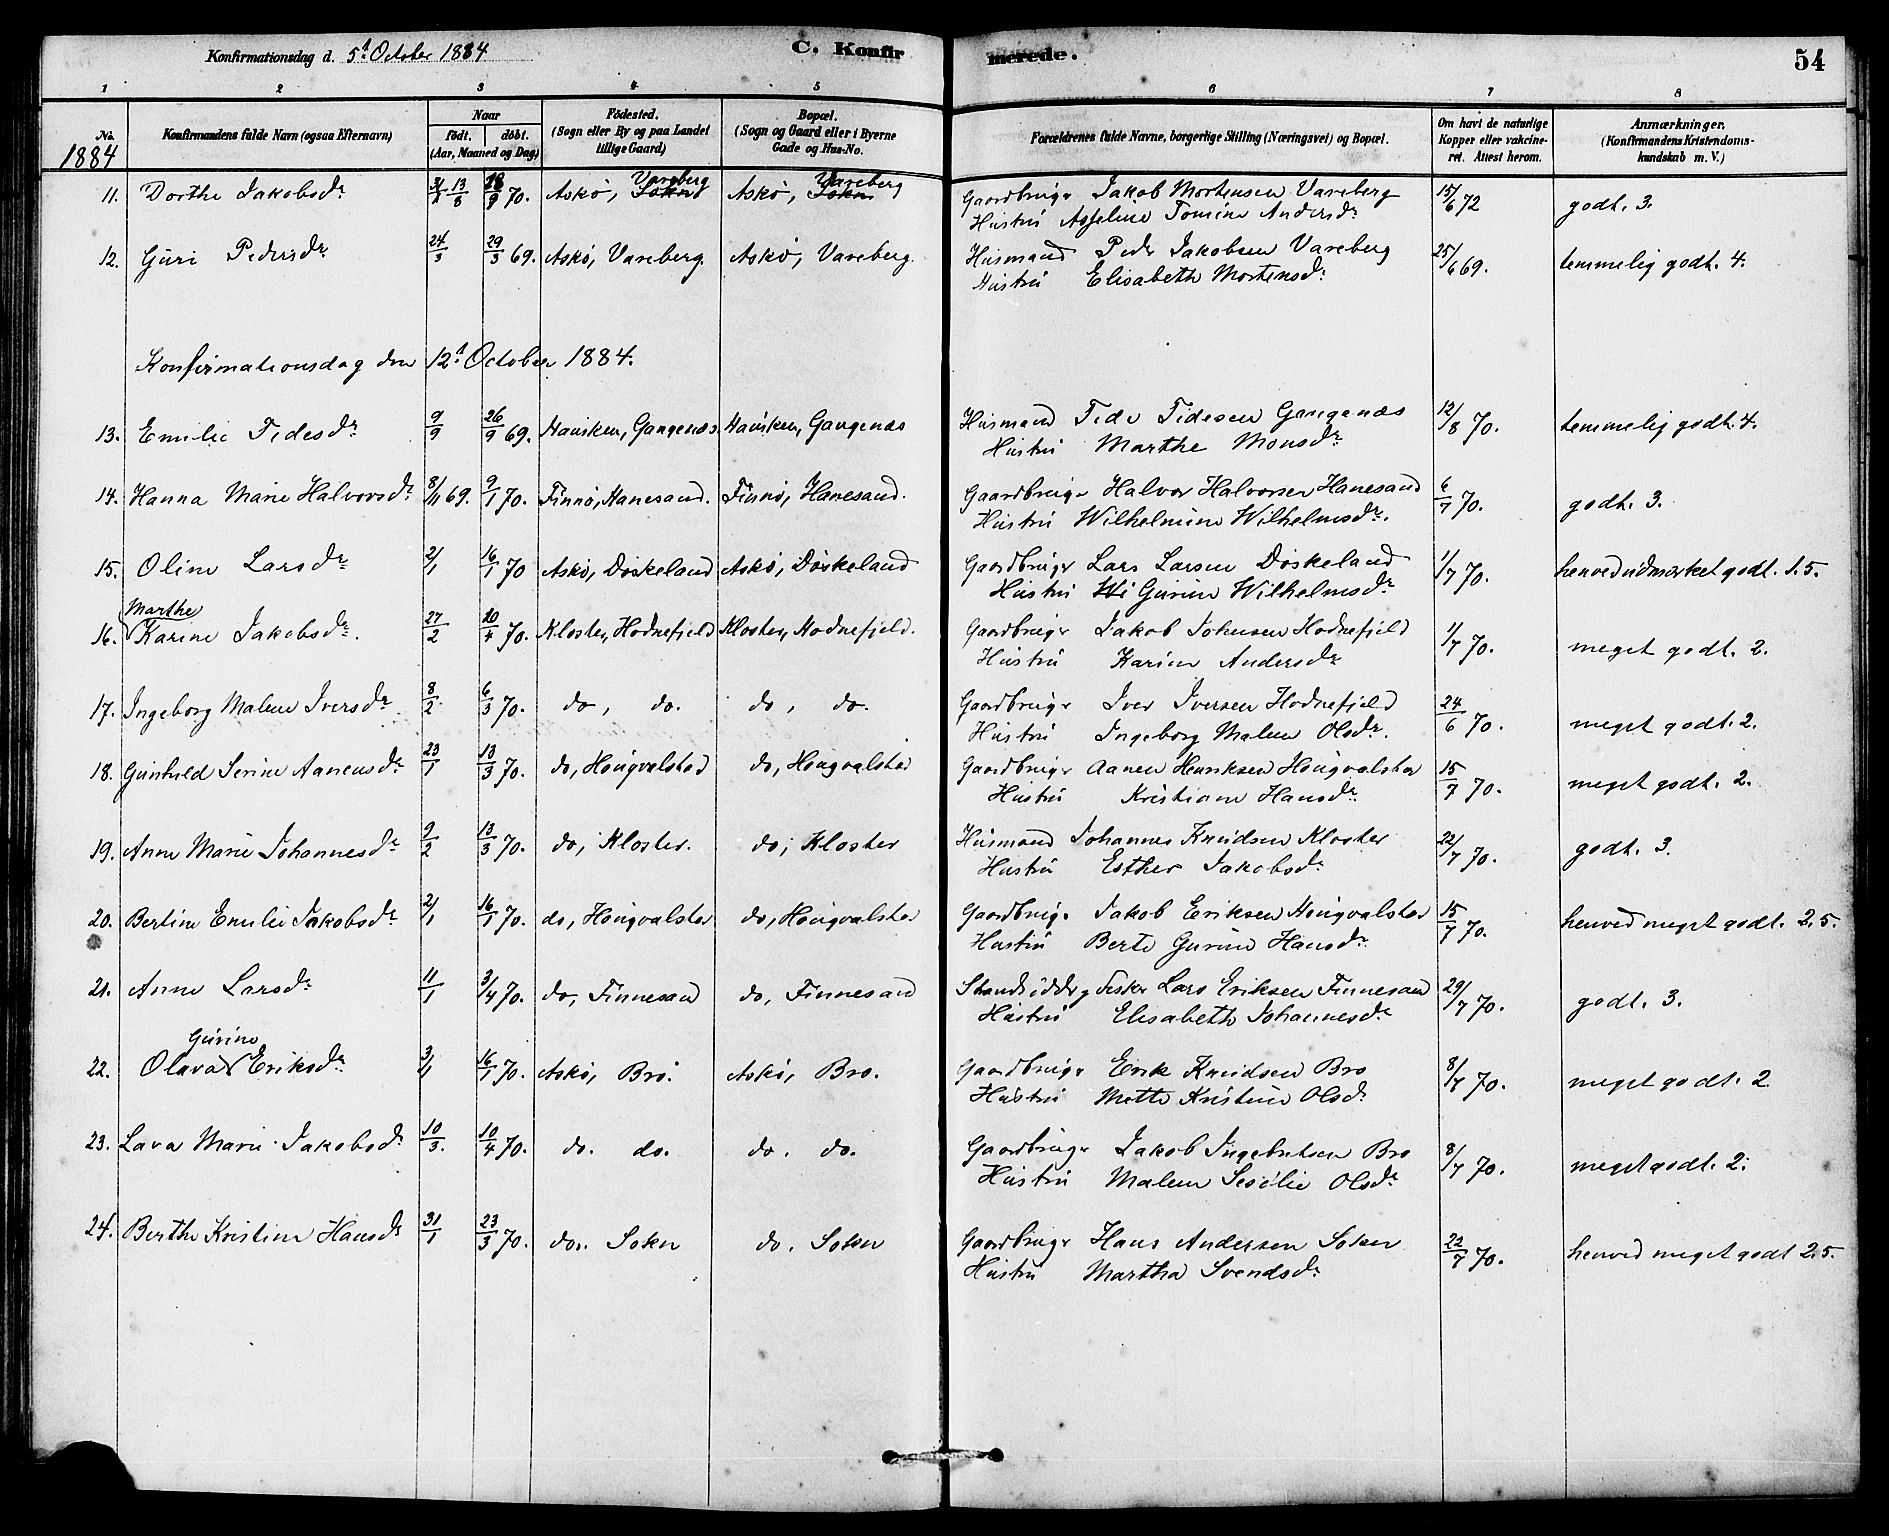 Konfirmationsdag d. 5t October 1884 C. Konfirmerede. 54
1 2 3 4 5 6 7 8
No. Konfirmandens fulde Navn (ogsaa Efternavn) Naar født. døbt. (Aar, Maaned og Dag) Fødested. (Sogn eller By og paa Landet tillige Gaard) Bopæl. (Sogn og Gaard eller i Byerne Gade og Hus-No. Forældrenes fulde Navne, borgerlige Stilling (Næringsvei) og Bopæl. Om havt de naturlige Kopper eller vakcineret. Attest herom. Anmærkninger. (Konfirmandens Kristendomskundskab m. V.)
1884
11. Dorthe Jakobsdr 13/8 18/9 70. Askø, Vareberg Sokn Askø, Vareberg Sokn Gaardbruger Jakob Mortensen Vareberg 15/6 72 godt. 3.
Hustru Asseline Tomine Andersdr
12. Guri Pedersdr 24/3 29/3 69. Askø, Vareberg. Askø, Vareberg. Husmand Peder Jakobsen Vareberg 25/6 69. temmelig godt. 4.
Hustru Elisabeth Mortensdr
Konfirmationsdag den 12t October 1884.
13. Emilie Tidesdr 9/9 26/9 69. Hausken, Gangenæs Hausken, Gangenæs Husmand Tide Tidesen Gangenæs 12/8 70. temmelig godt. 4.
Hustru Marthe Monsdr
14. Hanna Marie Halvorsdr 8/11 69. 9/1 70. Finnø, Hanesand. Finnø, Hanesand. Gaardbruger Halvor Halvorsen Hanesand 6/7 70. godt. 3.
Hustru Wilhelmine Wilhelmsdr.
15. Oline Larsdr 2/1 16/1 70 Askø, Døskeland Askø, Døskeland Gaardbruger Lars Larsen Døskeland 1/7 70. henved udmærket godt. 1.5.
Hustru Wi Gurine Wilhelmsdr
16. Marthe Karine Jakobsdr. 27/2 10/4 70. Kloster, Hodnefjeld Kloster, Hodnefjeld. Gaardbruger Jakob Johnsen Hodnefjeld 1/7 70. meget godt. 2.
Hustru Karine Andersdr
17. Ingeborg Malene Iversdr 8/2 6/3 70. do, do. do, do. Gaardbruger Iver Iversen Hodnefjeld 24/6 70. meget godt. 2.
Hustru Ingeborg Malene Olsdr.
18. Gunhild Serine Aanensdr 23/1 13/3 70. do, Hougvalstad do, Hougvalstad Gaardbruger Aanen Henriksen Hougvalstad 15/7 70. meget godt. 2.
Hustru Kristiane Hansdr.
19. Anne Marie Johannesdr 9/2 13/3 70. do, Kloster. do, Kloster Husmand Johannes Knudsen Kloster 22/7 70. godt. 3.
Hustru Esther Jakobsdr
20. Bertine Emilie Jakobsdr 2/1 16/1 70. do, Hougvalstad do, Hougvalstad Gaardbruger Jakob Eriksen Hougvalstad 15/7 70. henved meget godt. 2.5.
Hustru Berte Gurine Hansdr
21. Anne Larsdr 11/1 3/4 70. do, Finnesand do, Finnesand Strandsidder og Fisker Lars Eriksen Finnesand 29/7 70. godt. 3.
Hustru Elisabeth Johannesdr
22. Olava Gurine Eriksdr 3/1 16/1 70. Askø, Bro. Askø, Bro. Gaardbruger Erik Knudsen Bro 8/7 70. meget godt. 2
Hustru Mette Kristine Olsdr
23. Lava Marie Jakobsdr 10/3. 10/4 70. do. do. do. do. Gaardbruger Jakob Ingebretsen Bro 8/7 70. meget godt. 2.
Hustru Malene Sesilie Olsdr
24. Berthe Kristine Hansdr 31/1 23/3 70. do. Sokn do. Sokn Gaardbruger Hans Andersen Sokn 22/7 70. henved meget godt 2.5.
Hustru Martha Svendsdr